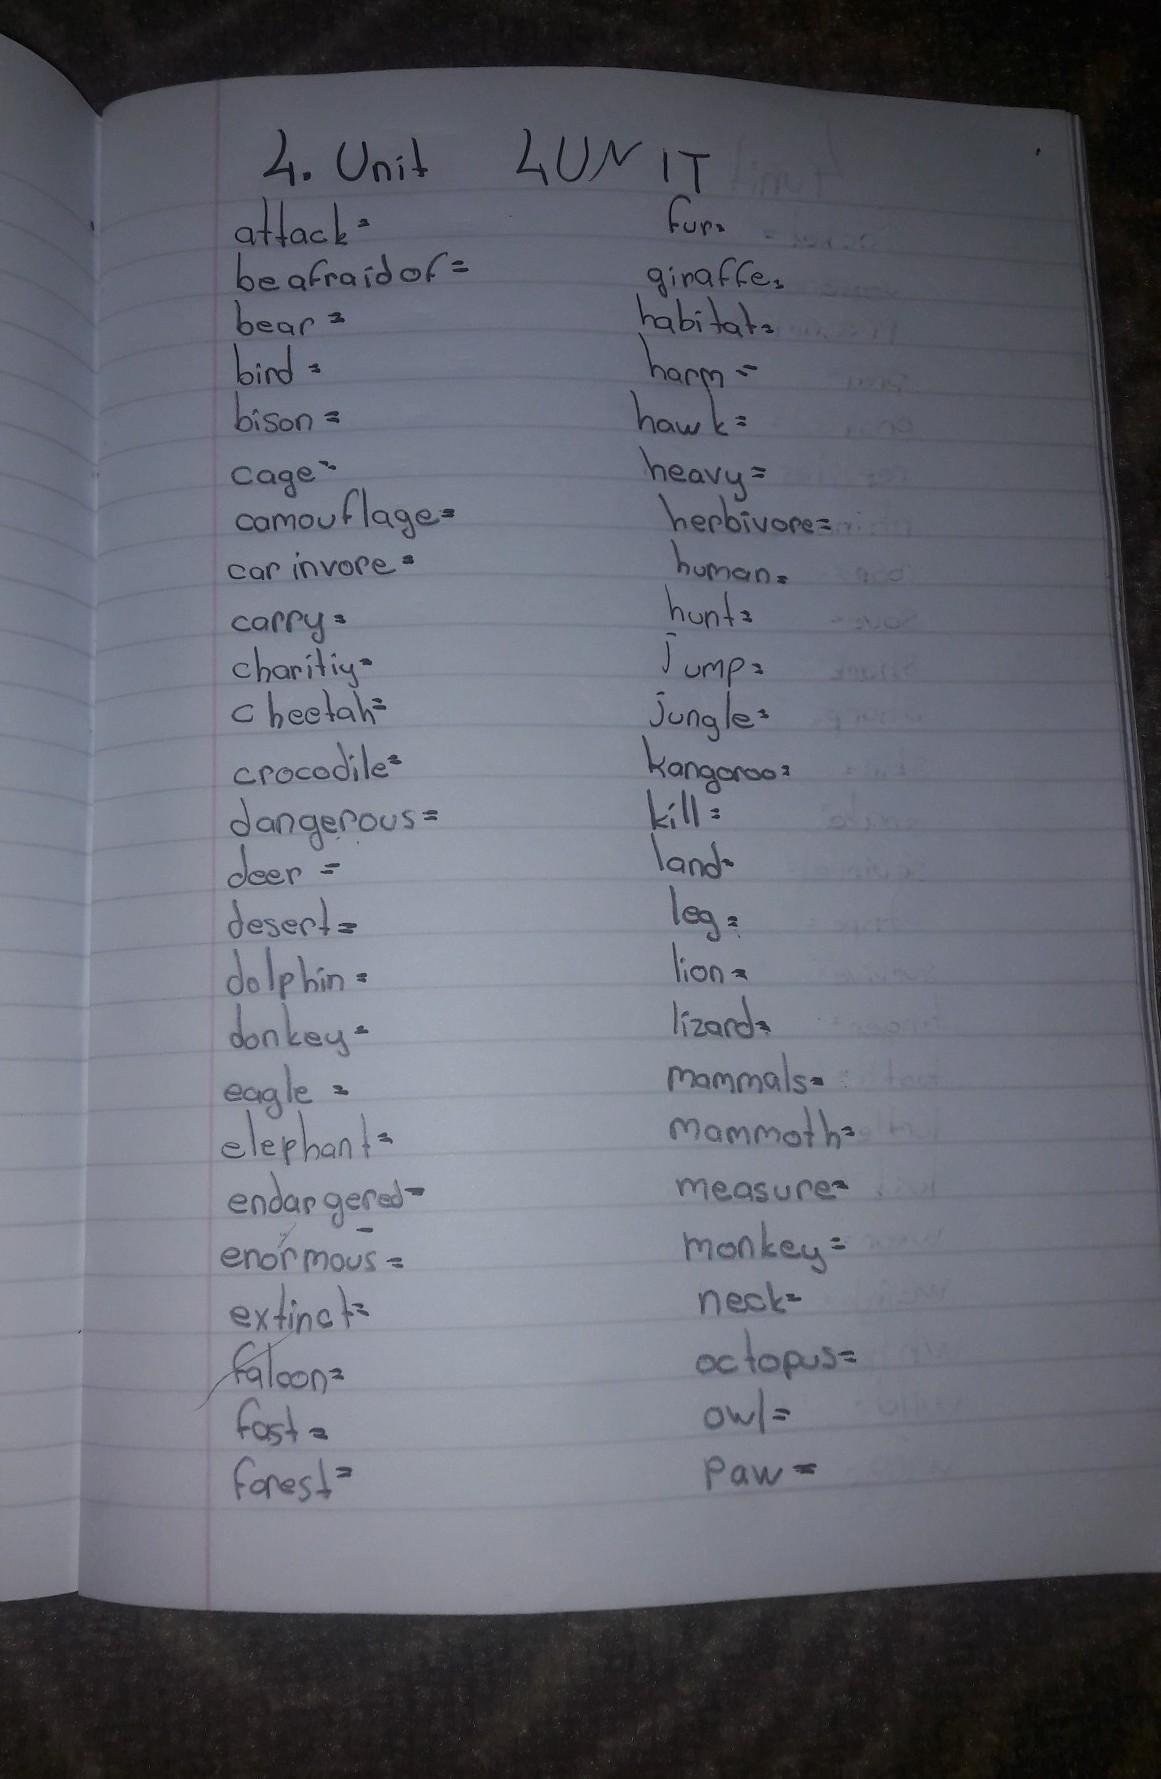 4. Unit 4UNIT
attack=
be afraid of=
bear=
bird=
bison=
cage=
camouflage=
carinvore=
carry=
charitiy=
cheetah=
crocodile=
dangerous=
deer=
desert=
dolphin=
donkey=
eagle=
elephant=
endangered=
enormous=
extinct=
falcon=
fast=
forest=
fur=
giraffe=
habitat=
harm=
hawk=
heavy=
herbivore=
human=
hunt=
jump=
jungle=
kangoroo=
kill=
land=
leg=
lion=
lizard=
mammals=
mammoth=
measure=
monkey=
neck=
octopus=
owl=
paw=